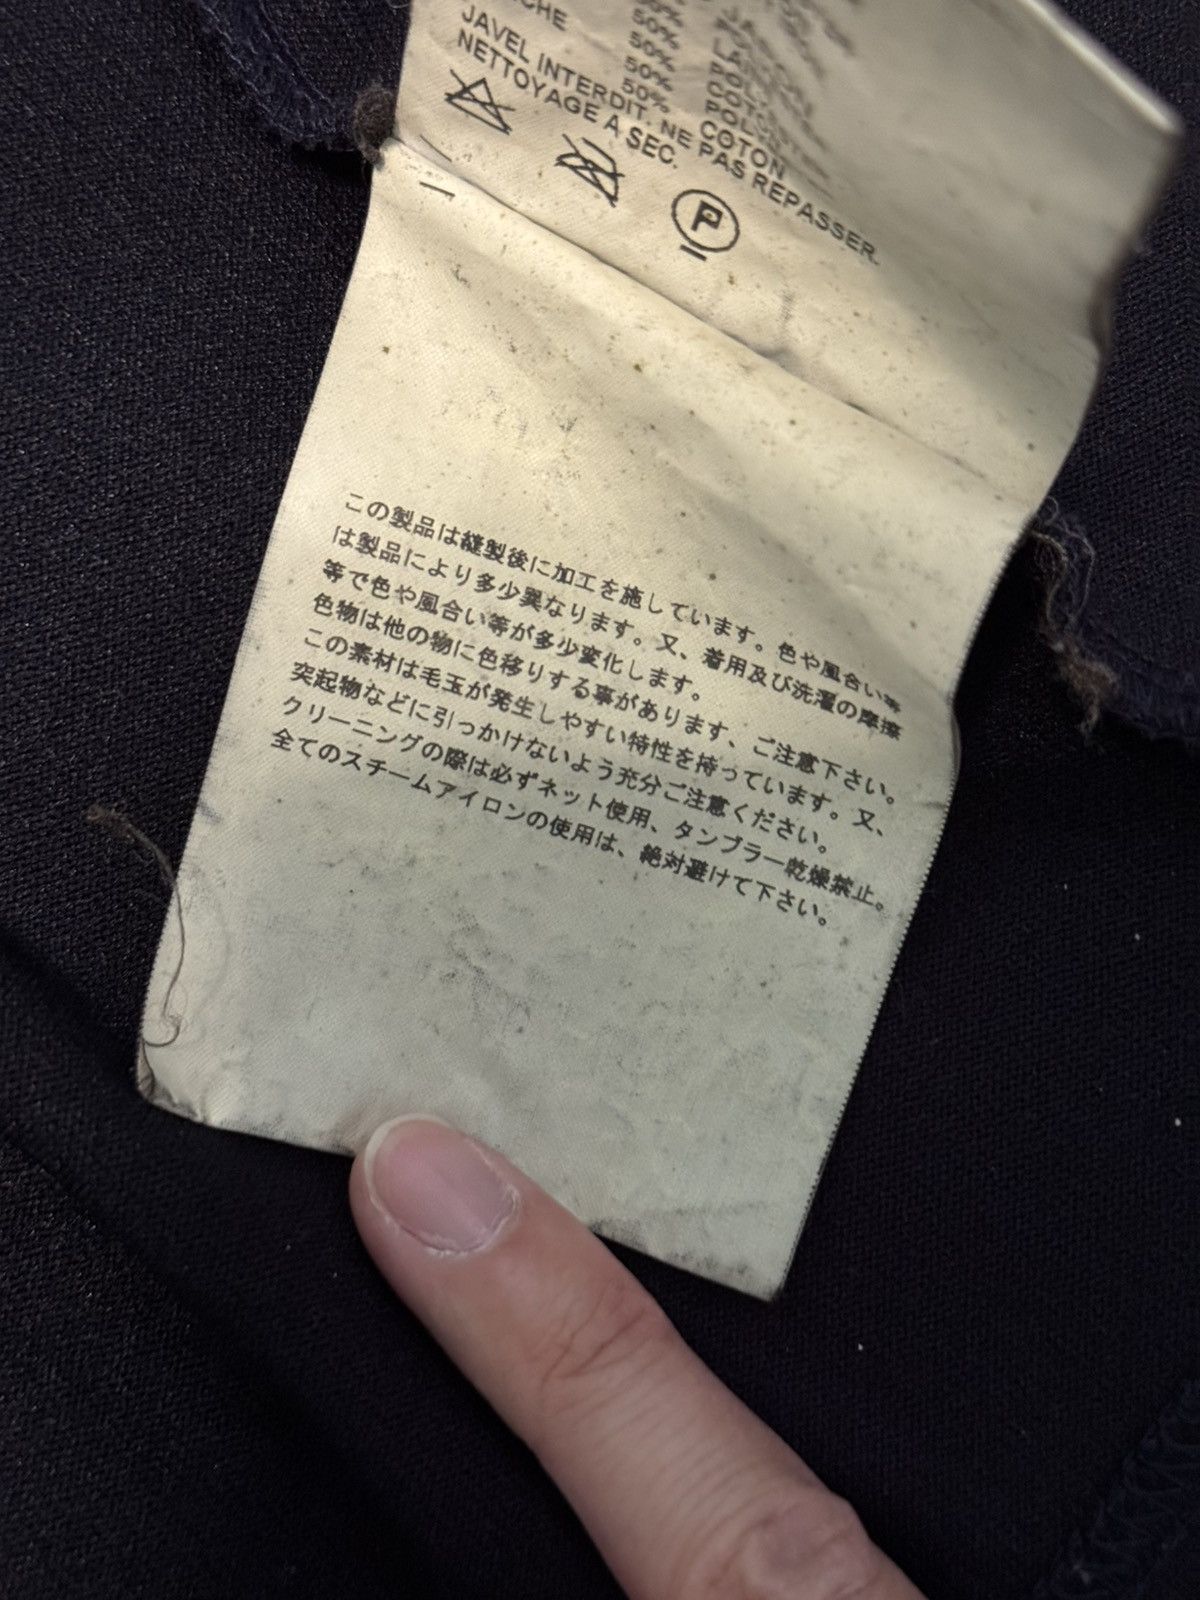 50%
50%
50%
50%
50% COTON
JAVEL INTERDIT. NE PAS REPASSER.
NETTOYAGE A SEC.
P
この製品は縫製後に加工を施しています。色や風合い等
は製品により多少異なります。又、着用及び洗濯の摩擦
等で色や風合い等が多少変化します。
色物は他の物に色移りする事があります、ご注意下さい。
この素材は毛玉が発生しやすい特性を持っています。又、
突起物などに引っかけないよう充分ご注意ください。
クリーニングの際は必ずネット使用、タンブラー乾燥禁止。
全てのスチームアイロンの使用は、絶対避けて下さい。